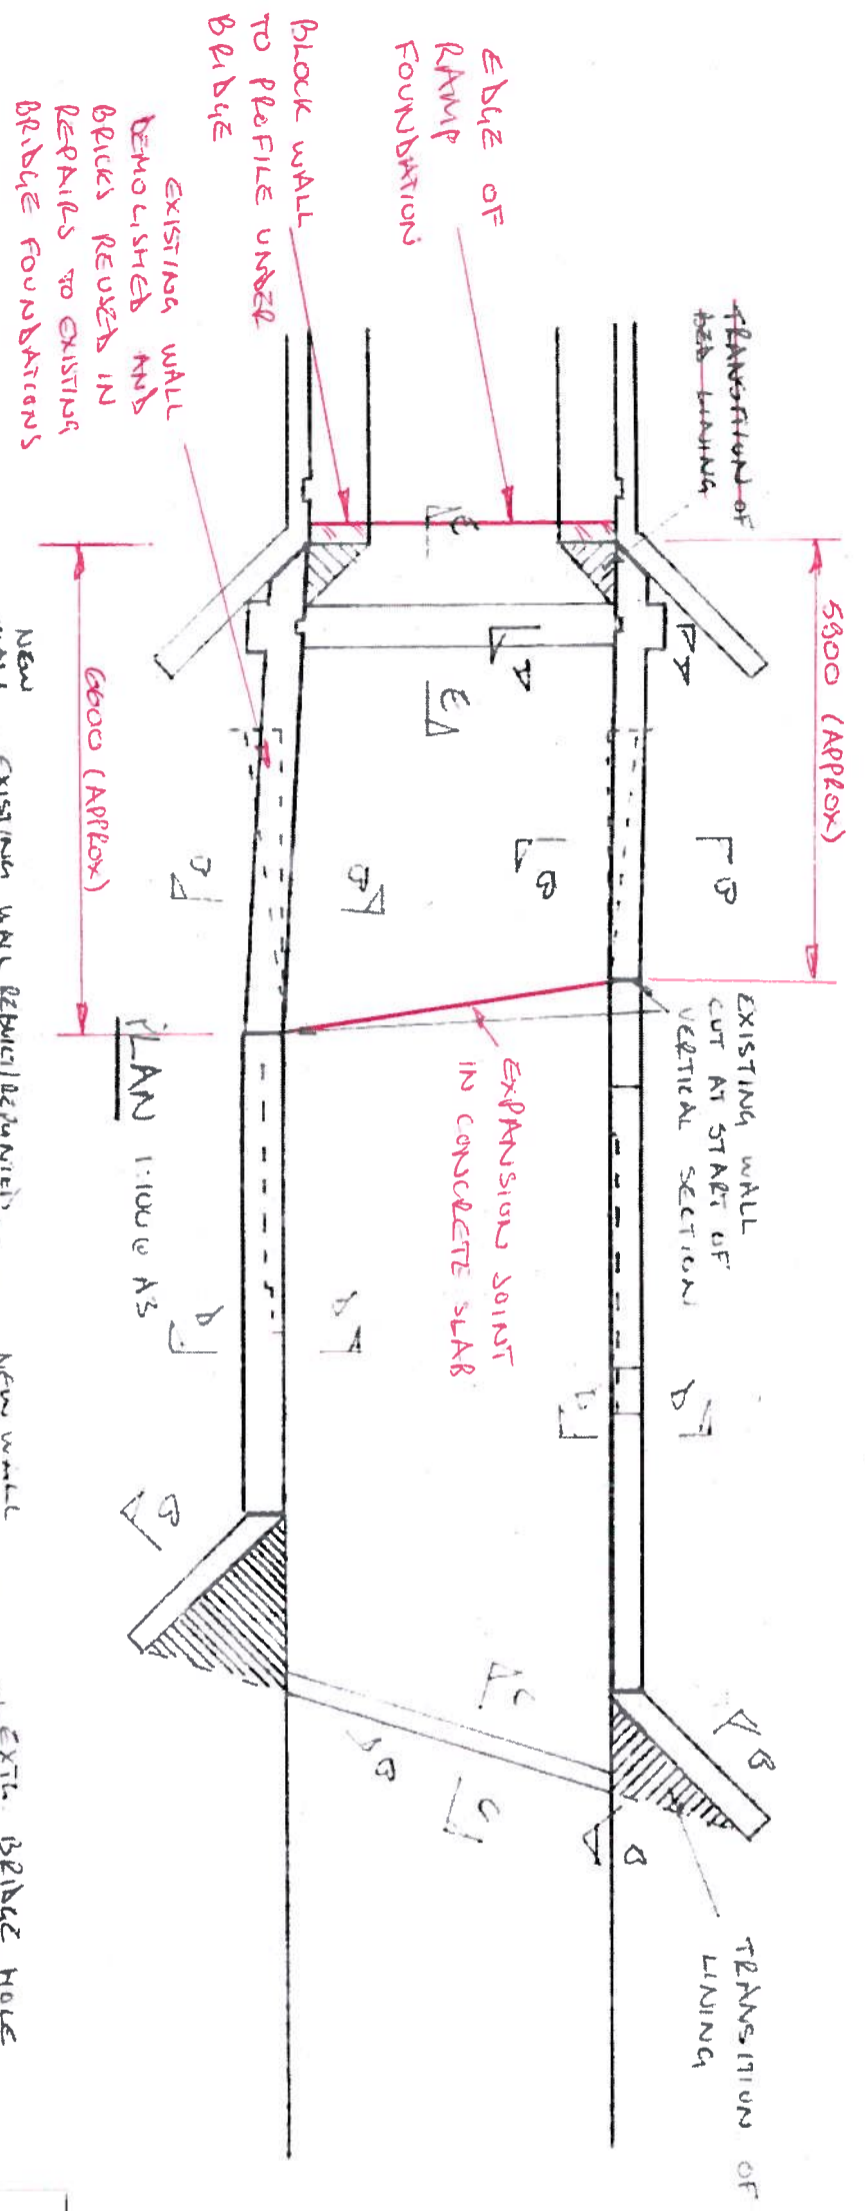 TRANSITION OF
BED LINING
5900 (APPROX)
EDGE OF
RAMP
FOUNDATION
BLOCK WALL
TO PROFILE UNDER
BRIDGE
EXISTING WALL
DEMOLISHED AND
BRICKS REUSED IN
REPAIRS TO EXISTING
BRIDGE FOUNDATIONS
E
E
A
A
B
B
B
B
EXISTING WALL
CUT AT START OF
VERTICAL SECTION
EXPANSION JOINT
IN CONCRETE SLAB
6600 (APPROX)
PLAN 1:100@A3
B
B
C
C
B
TRANSITION OF
LINING
NEW
EXISTING WALL
NEW WALL
EXTG. BRIDGE HOLE